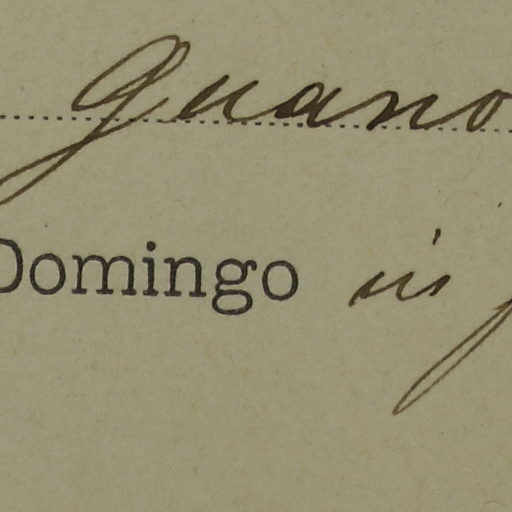 Guano
Domingo is